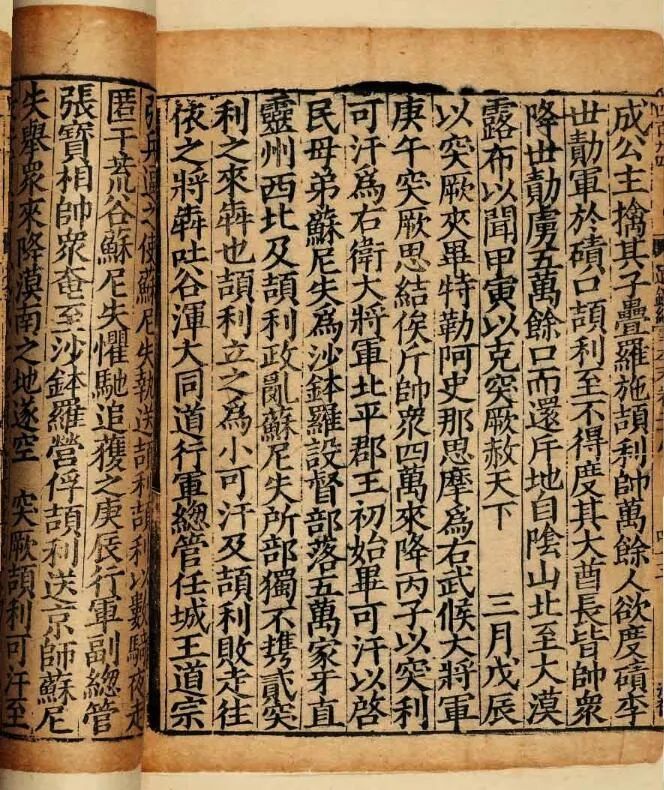 成公主擒其子疊羅施頡利帥萬餘人欲度磧李
世勣軍於磧口頡利至不得度其大酋長皆帥衆
降世勣虜五萬餘口而還斥地自陰山北至大漠
露布以聞甲寅以克突厥赦天下　三月戊辰
以突厥夾畢特勒阿史那思摩爲右武候大將軍
庚午突厥思結俟斤帥衆四萬來降丙子以突利
可汗爲右衛大將軍北平郡王初始畢可汗以啓
民母弟蘇尼失爲沙鉢羅設督部落五萬家牙直
靈州西北及頡利政亂蘇尼失所部獨不攜貳突
利之來犇也頡利立之爲小可汗及頡利敗走往
依之將犇吐谷渾大同道行軍總管任城王道宗
使蘇尼失執送頡利頡利以數騎夜走
匿于荒谷蘇尼失懼馳追獲之庚辰行軍副總管
張寶相帥衆奄至沙鉢羅營俘頡利送京師蘇尼
失舉衆來降漠南之地遂空　突厥頡利可汗至